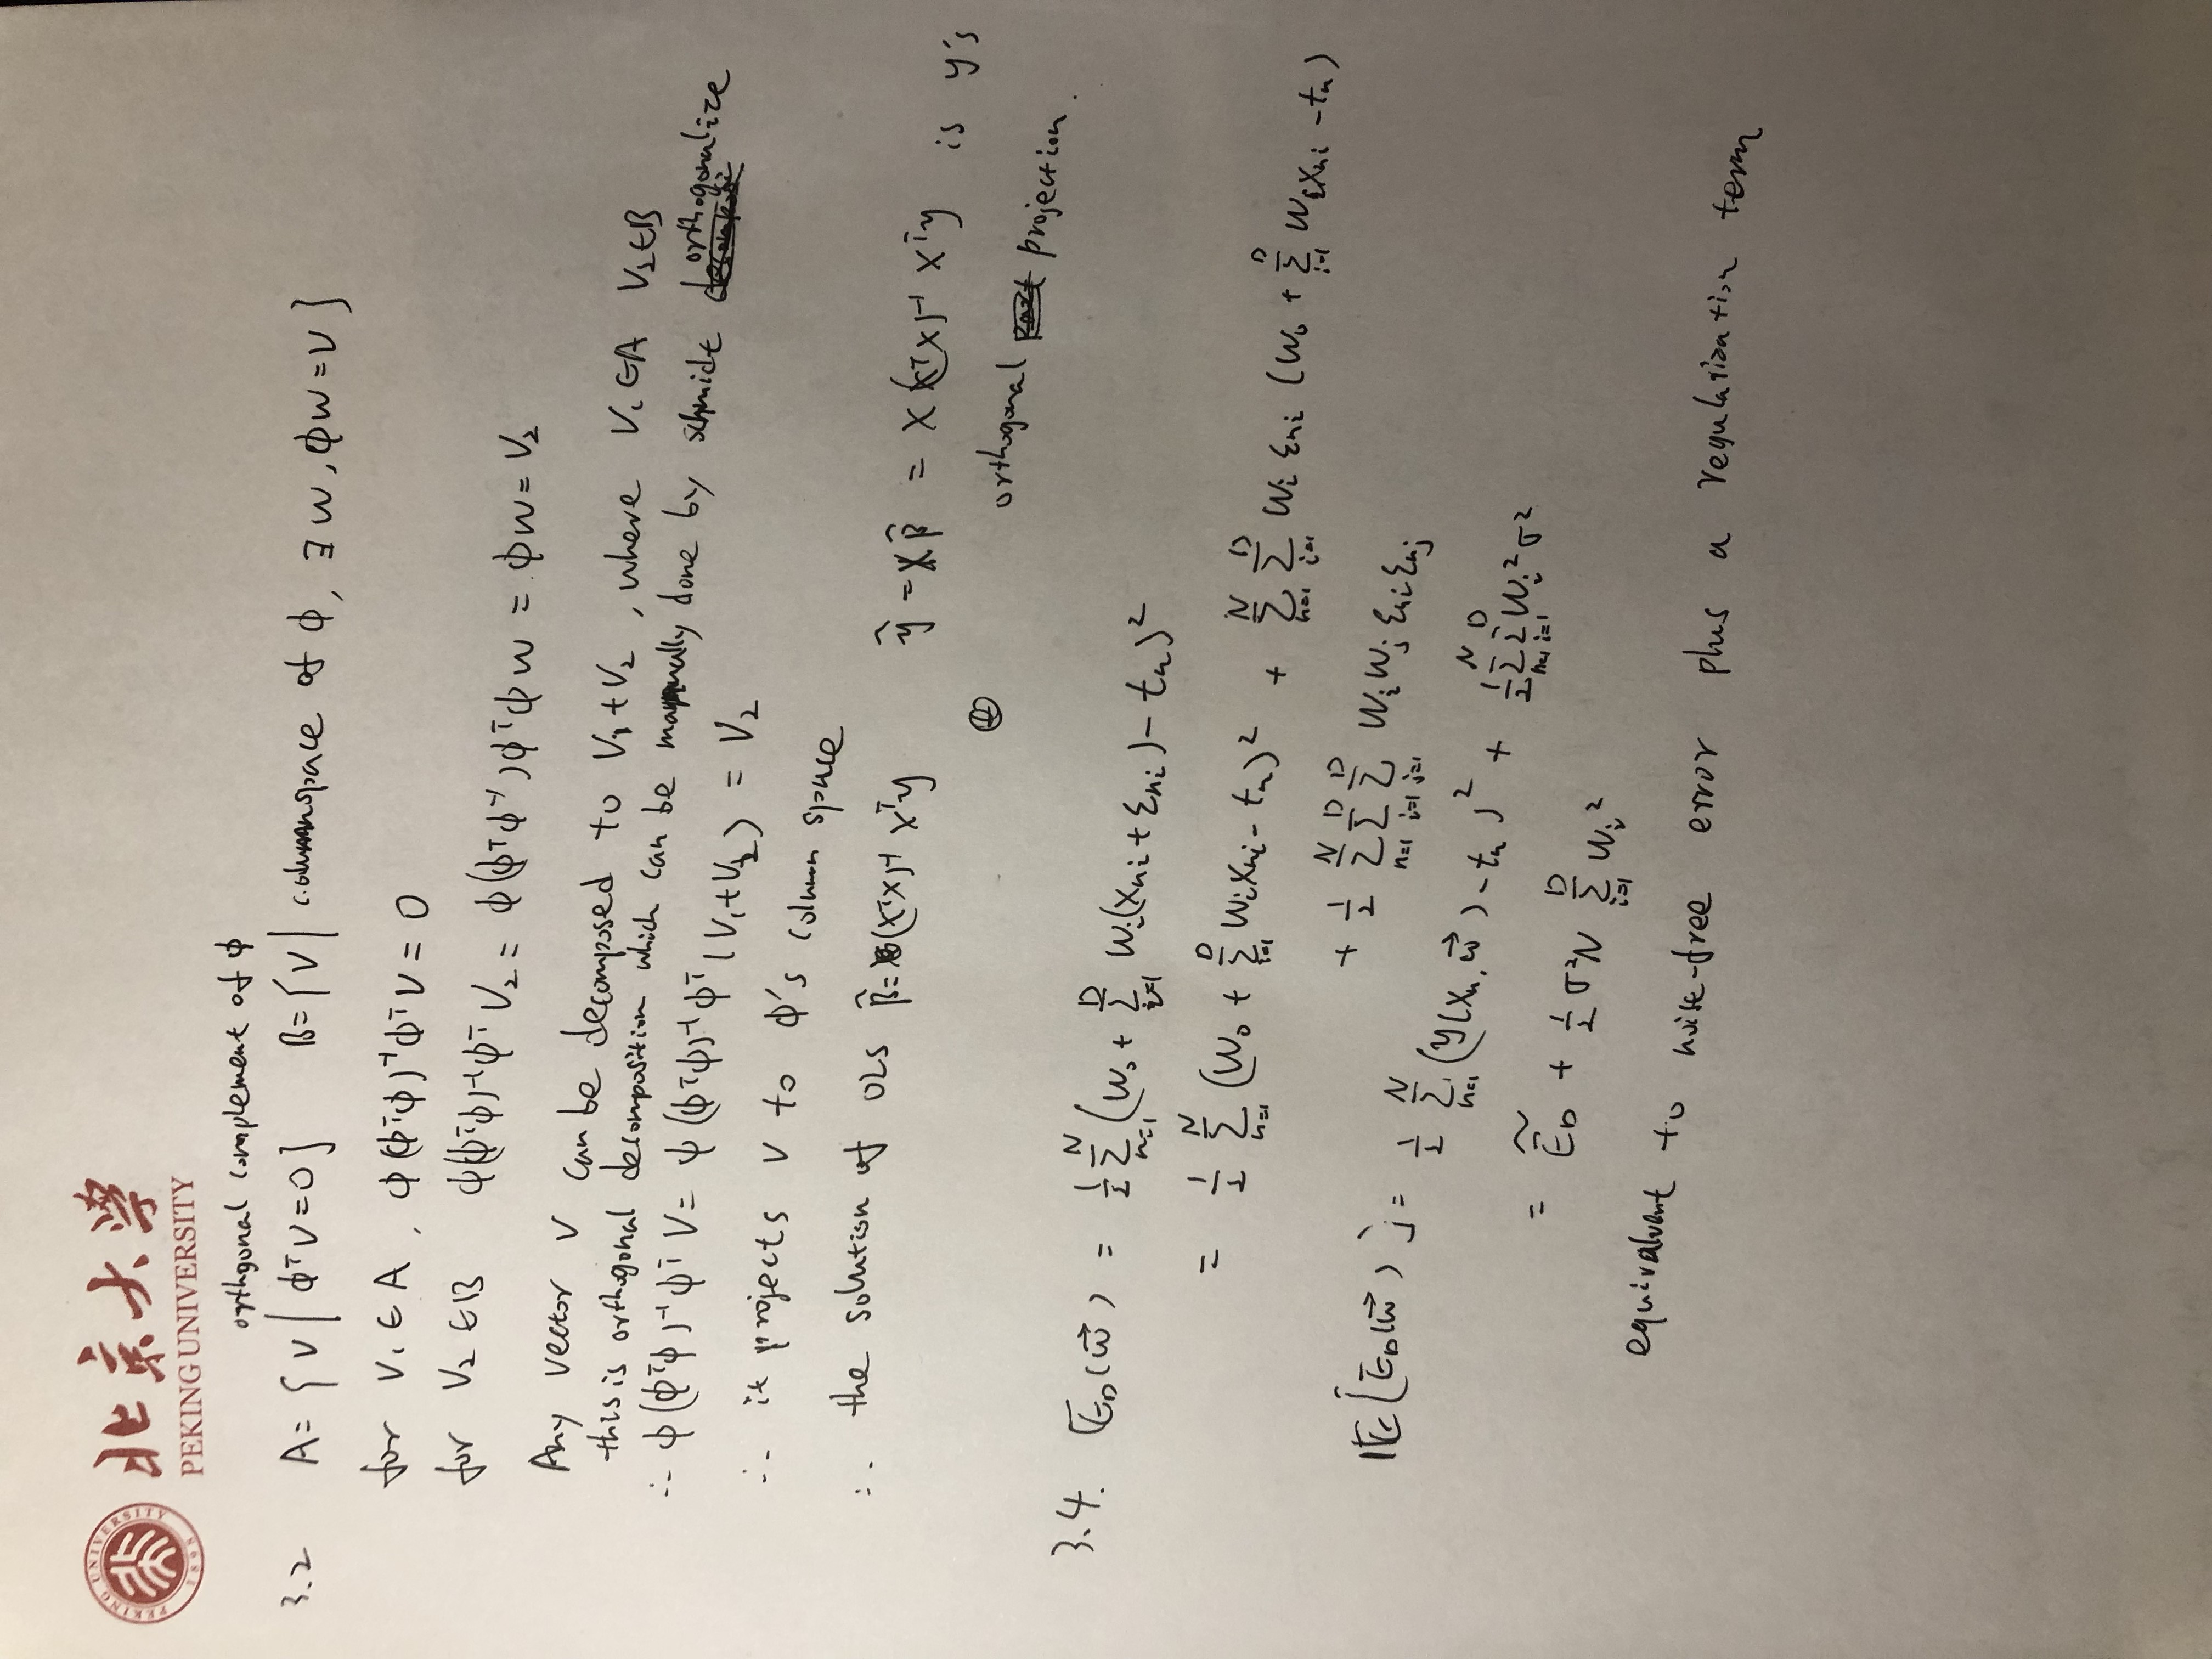 北京大学
PEKING UNIVERSITY
PEKING UNIVERSITY 1898
orthogonal complement of φ
3.2 A = { v | φᵀv = 0 } B = { v | column space of φ, ∃ w, φw = v }
for v₁ ∈ A, φ(φᵀφ)⁻¹φᵀv = 0
for v₂ ∈ B φ(φᵀφ)⁻¹φᵀv₂ = φ(φᵀφ)⁻¹φᵀφw = φw = v₂
Any vector v can be decomposed to v₁+v₂, where v₁∈A v₂∈B
this is orthogonal decomposition which can be manually done by schmidt orthogonalize
∴ φ(φᵀφ)⁻¹φᵀv = φ(φᵀφ)⁻¹φᵀ(v₁+v₂) = v₂
∴ it projects v to φ's column space
∴ the solution of OLS β̂ = (XᵀX)⁻¹Xᵀy ŷ = Xβ̂ = X(XᵀX)⁻¹Xᵀy is y's
orthogonal projection.
3.4. E_D(w⃗) = 1/2 Σ_{n=1}^N (w₀ + Σ_{i=1}^D wᵢ(x_{ni} + ε_{ni}) − tₙ)²
= 1/2 Σ_{n=1}^N (w₀ + Σ_{i=1}^D wᵢx_{ni} − tₙ)² + Σ_{n=1}^N Σ_{i=1}^D wᵢε_{ni} (w₀ + Σ_{i=1}^D wᵢx_{ni} − tₙ)
+ 1/2 Σ_{n=1}^N Σ_{i=1}^D Σ_{j=1}^D wᵢwⱼε_{ni}ε_{nj}
E[E_D(w⃗)] = 1/2 Σ_{n=1}^N (y(xₙ, w⃗) − tₙ)² + 1/2 Σ_{n=1}^N Σ_{i=1}^D wᵢ²σ²
= Ẽ_D + 1/2 σ²N Σ_{i=1}^D wᵢ²
equivalent to noise-free error plus a regulation term